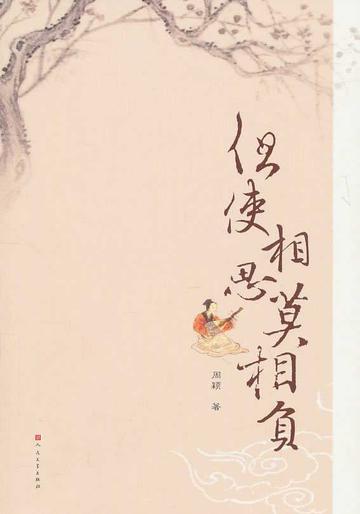 但使
相思
莫相负
周颖 著
人民文学出版社